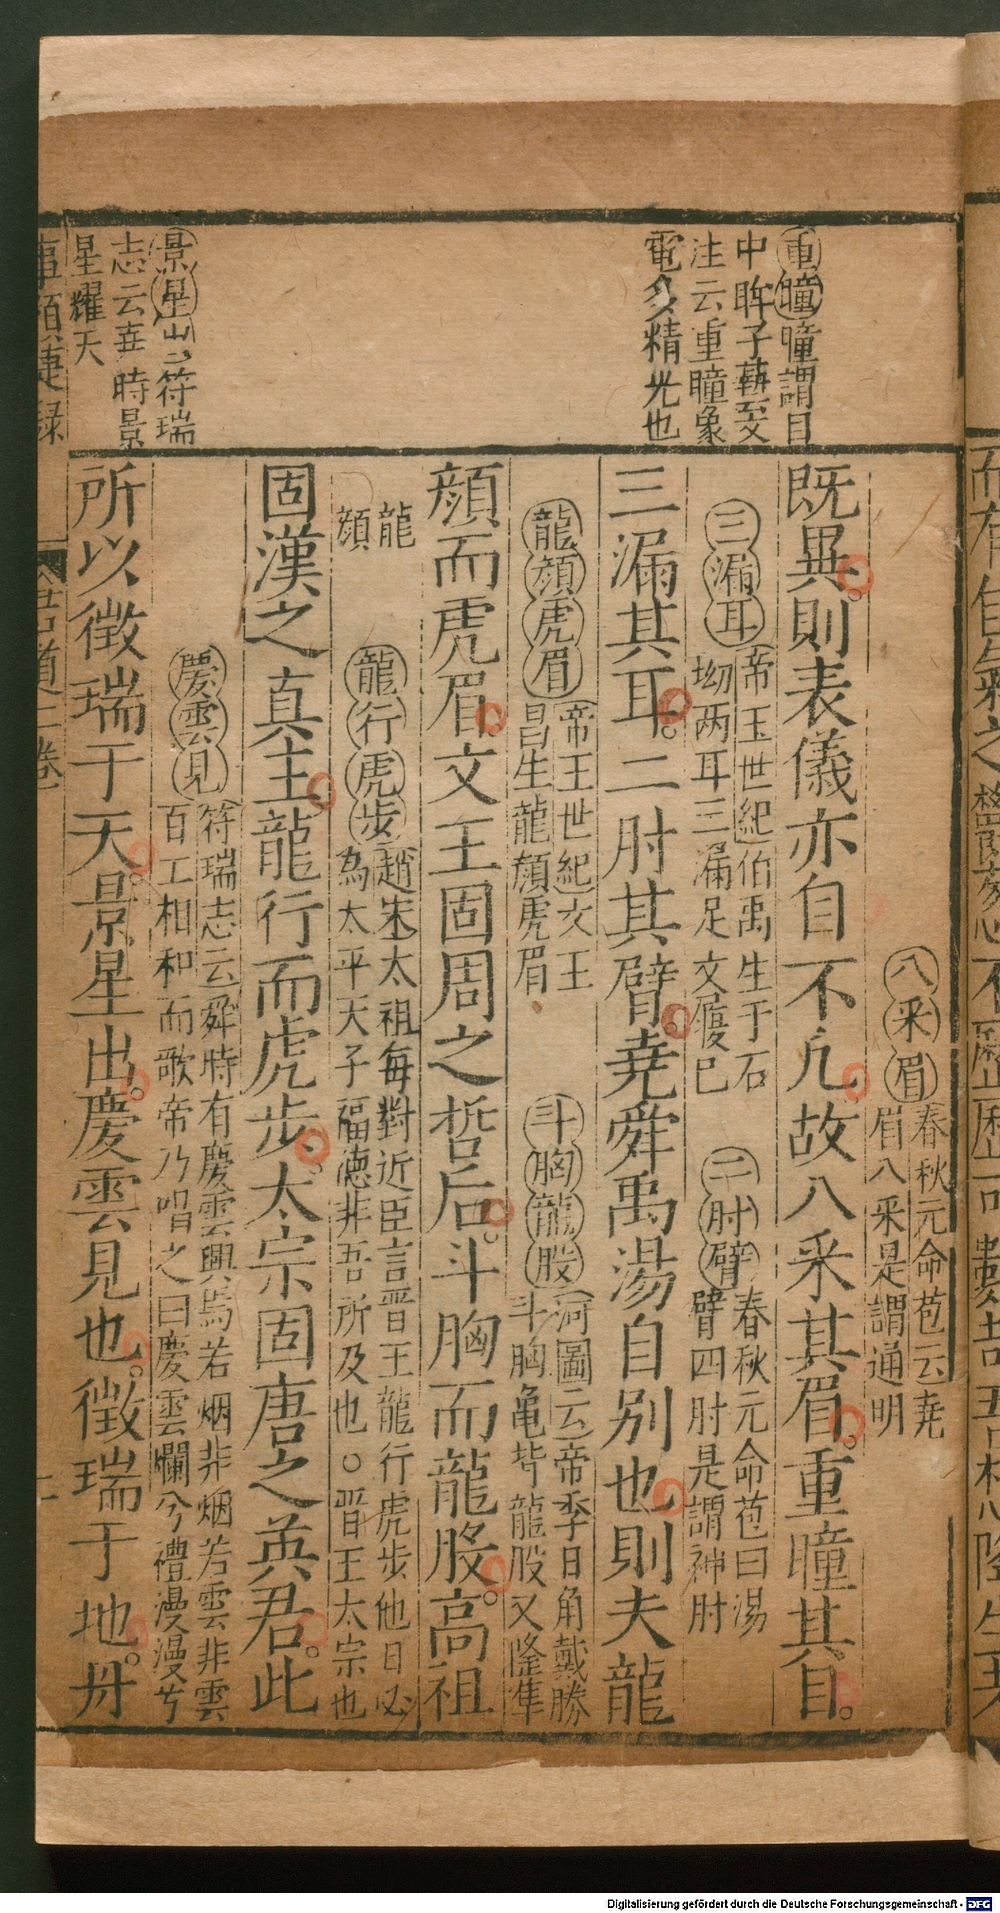 重瞳瞳謂目
中眸子藝文
注云重瞳象
電多精光也
景星出符瑞
志云堯時景
星耀天
八采眉春秋元命苞云堯
眉八采是謂通明
既異則表儀亦自不凢故八采其眉重瞳其目
三漏耳帝王世紀伯禹生于石
坳两耳三漏足文履巳
二肘臂春秋元命苞曰湯
臂四肘是謂神肘
三漏其耳二肘其臂堯舜禹湯自別也則夫龍
龍顔虎眉帝王世紀文王
昌生龍顔虎眉
斗胸龍股河圖云帝季日角戴勝
斗胸亀背龍股又隆隼
顔而虎眉文王固周之哲后斗胸而龍股高祖
龍
顔
龍行虎步趙宋太祖每對近臣言晋王龍行虎步他日必
為太平天子福德非吾所及也○晋王太宗也
固漢之真主龍行而虎步太宗固唐之英君此
慶雲見符瑞志云舜時有慶雲興焉若烟非烟若雲非雲
百工相和而歌帝乃唱之曰慶雲爛兮禮漫漫兮
所以徴瑞于天景星出慶雲見也徴瑞于地丹
事類捷録
道二卷
Digitalisierung gefördert durch die Deutsche Forschungsgemeinschaft - DFG